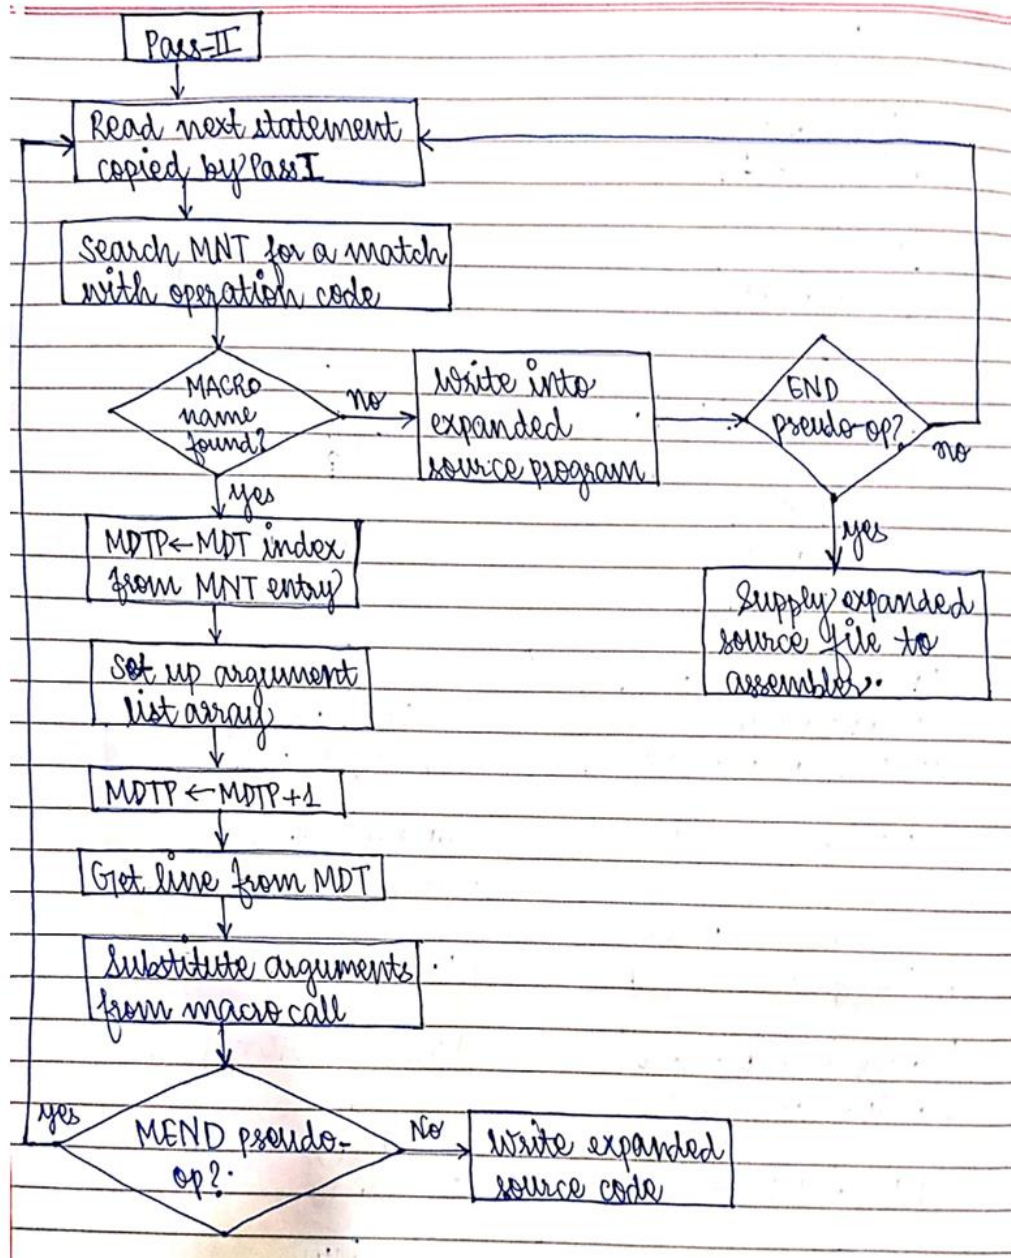 Pass-II
Read next statement
copied by Pass I
Search MNT for a match
with operation code
MACRO
name
found?
no
Write into
expanded
source program
END
pseudo-op?
no
yes
yes
MDTP←MDT index
from MNT entry
Supply expanded
source file to
assembler.
Set up argument
list array
MDTP←MDTP+1
Get line from MDT
Substitute arguments
from macro call
yes
MEND pseudo-
op?
No
Write expanded
source code